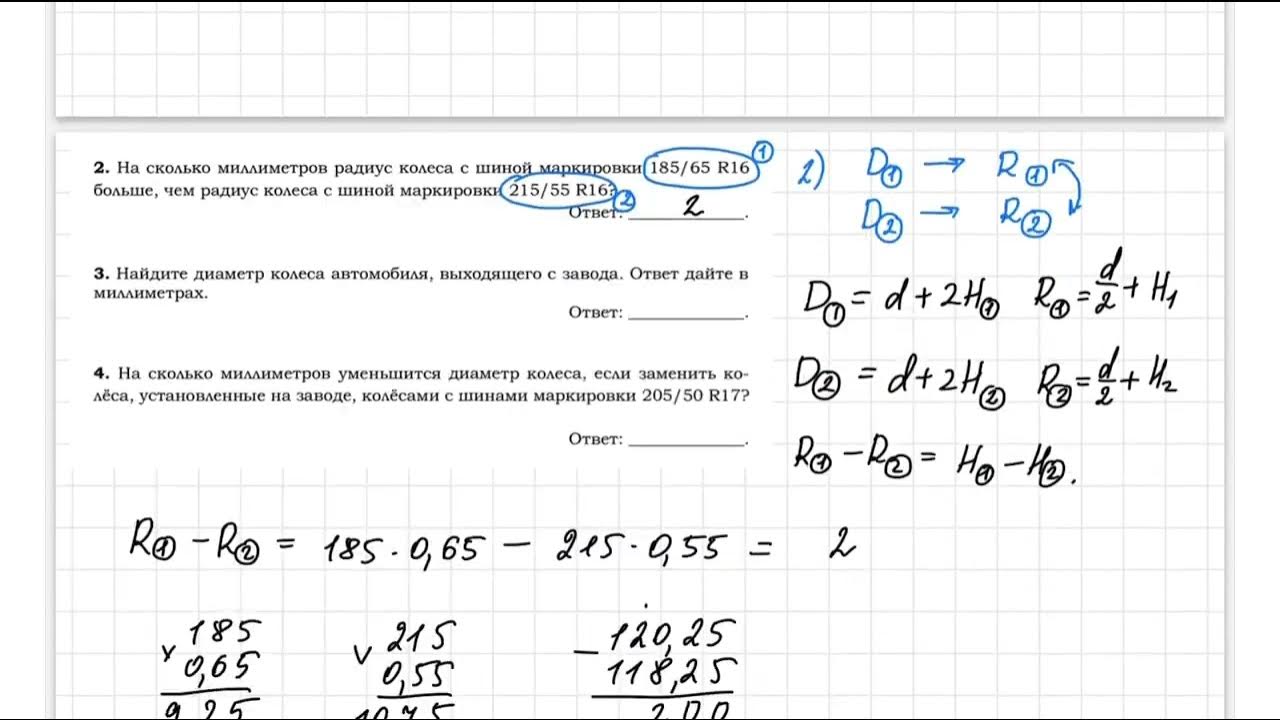 2. На сколько миллиметров радиус колеса с шиной маркировки 185/65 R16 ①
больше, чем радиус колеса с шиной маркировки 215/55 R16? ②
Ответ: 2.
3. Найдите диаметр колеса автомобиля, выходящего с завода. Ответ дайте в
миллиметрах.
Ответ: ____________.
4. На сколько миллиметров уменьшится диаметр колеса, если заменить ко-
лёса, установленные на заводе, колёсами с шинами маркировки 205/50 R17?
Ответ: ____________.
2) D① → R①
D② → R②
D① = d + 2H① R① = d/2 + H1
D② = d + 2H② R② = d/2 + H2
R① − R② = H① − H②.
R① − R② = 185 · 0,65 − 215 · 0,55 = 2
× 185
0,65
925
× 215
0,55
1075
− 120,25
118,25
200